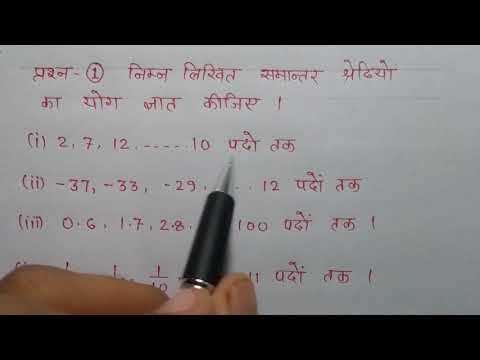 प्रश्न-① निम्न लिखित समान्तर श्रेढियों
का योग ज्ञात कीजिए ।
(i) 2, 7, 12, ...... 10 पदो तक
(ii) -37, -33, -29, ... 12 पदों तक
(iii) 0.6, 1.7, 2.8. 100 पदों तक ।
11 पदों तक ।